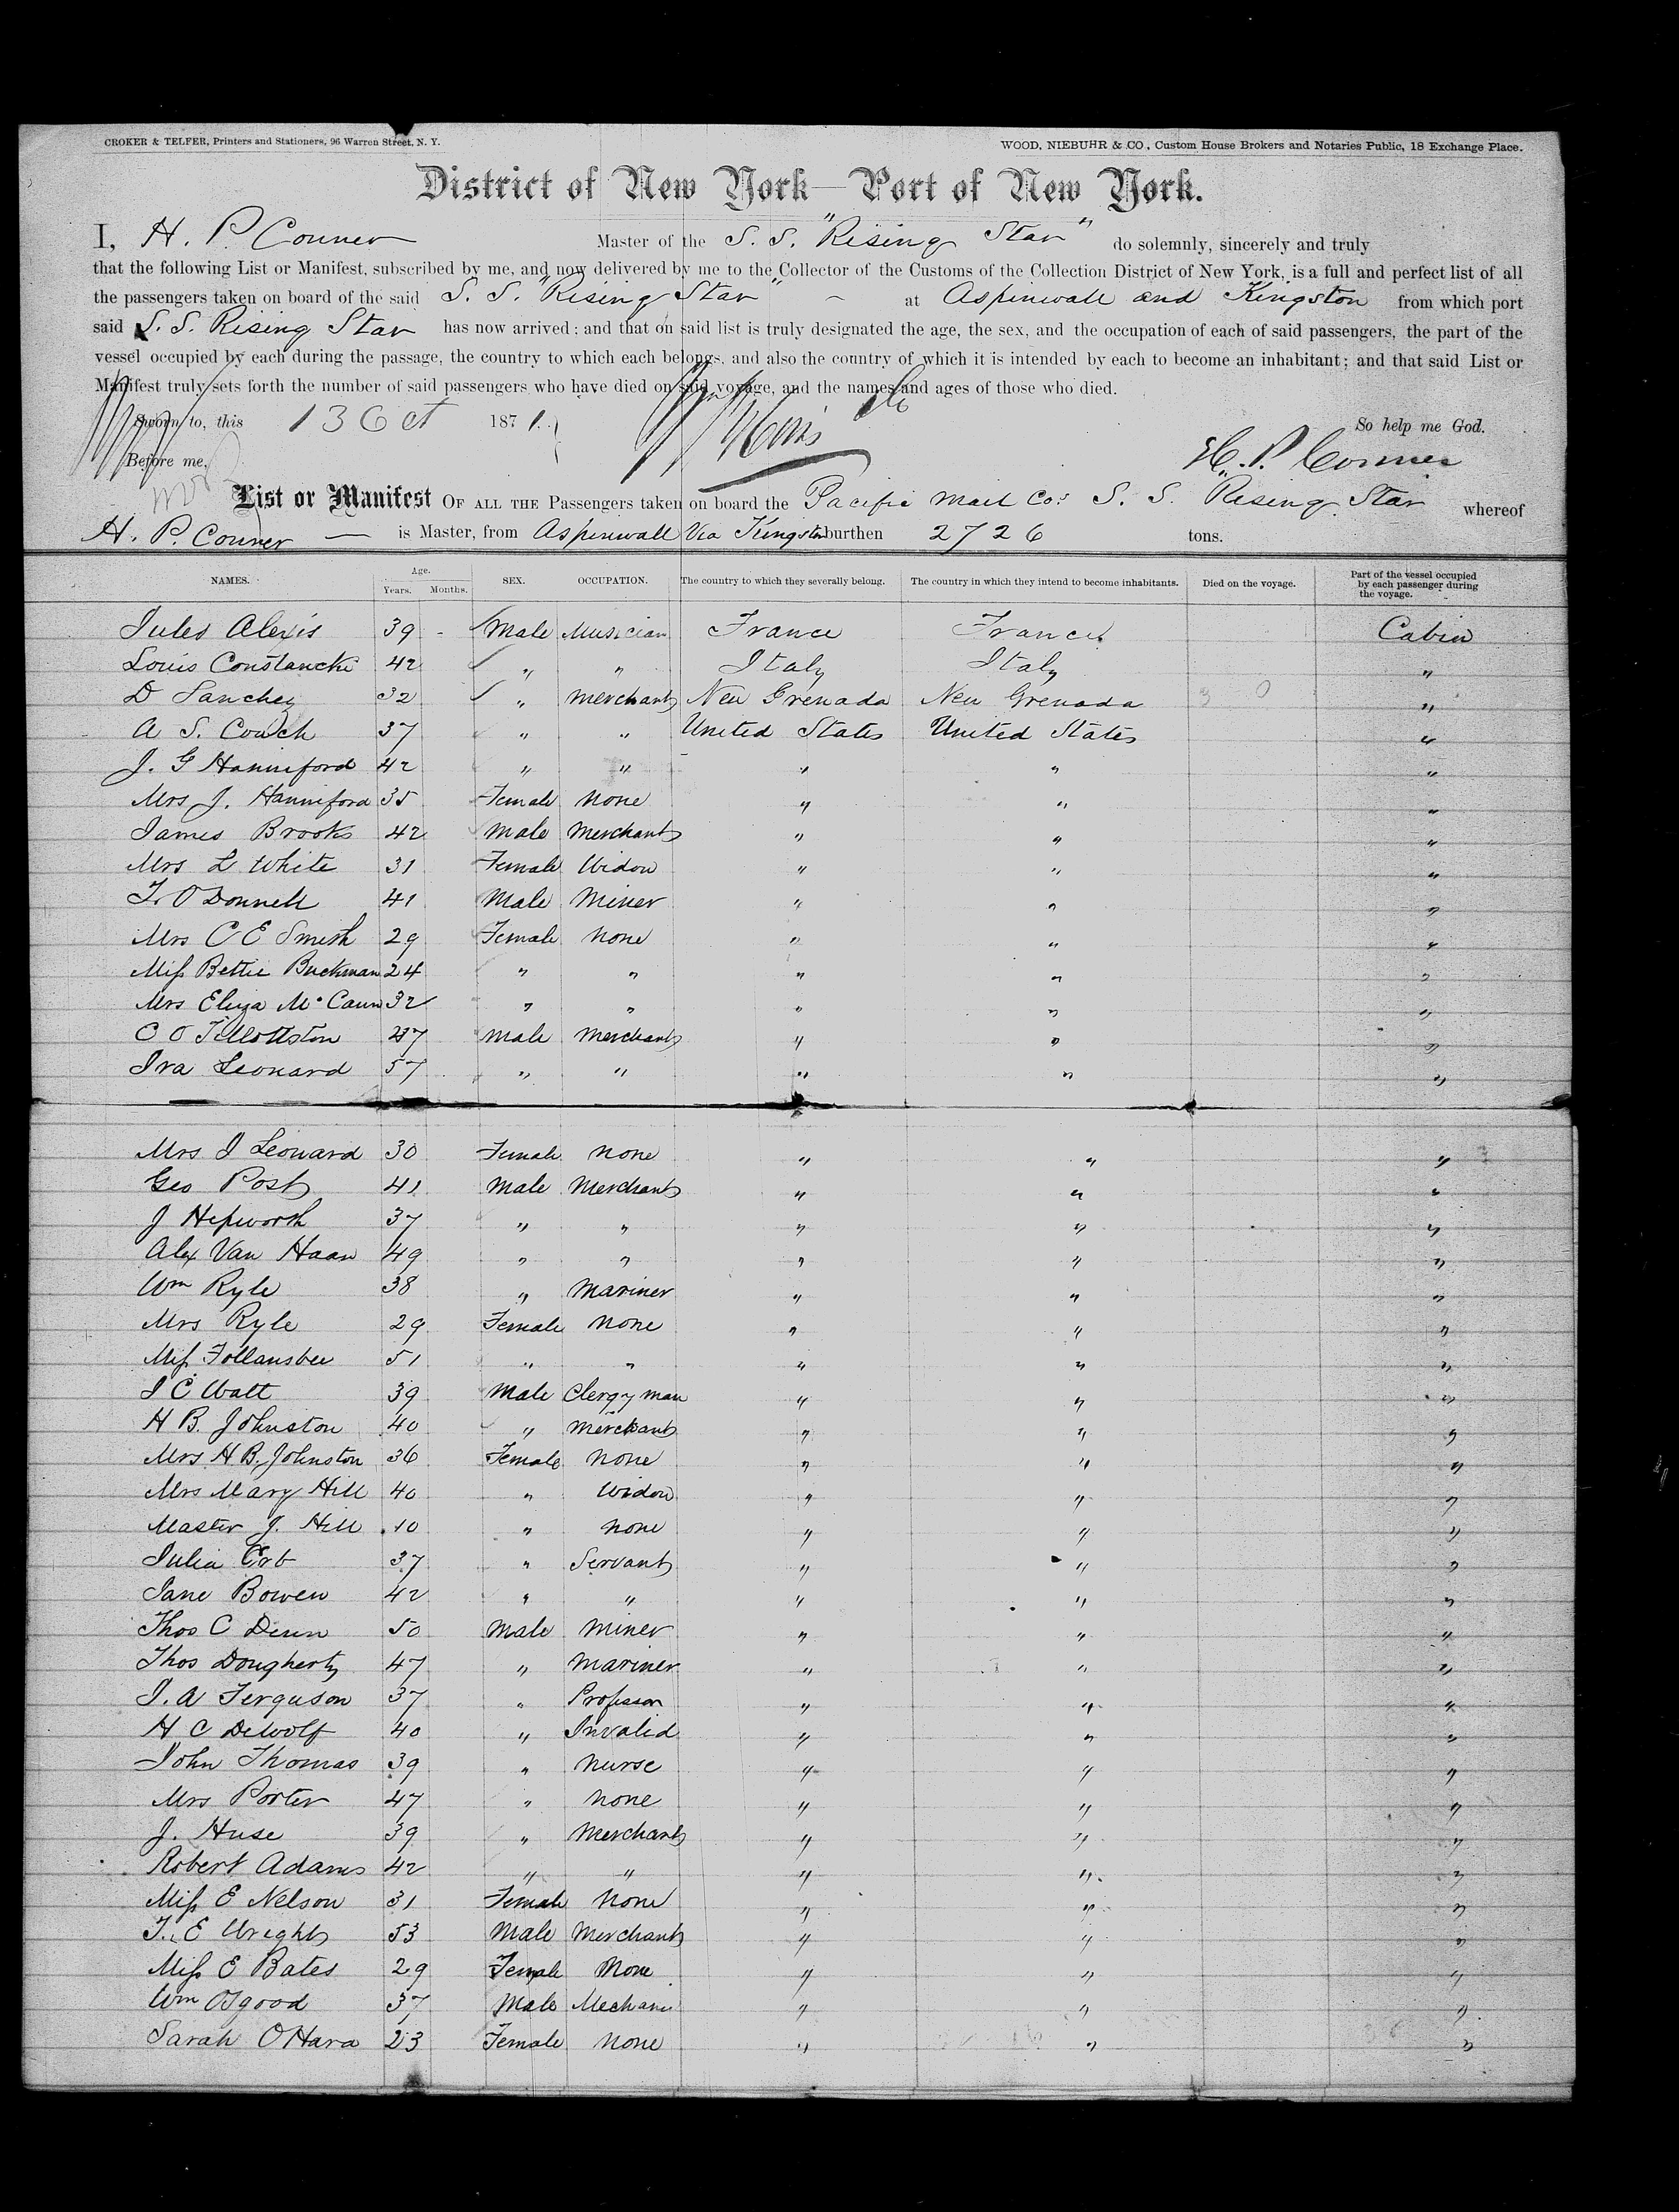 CROKER & TELFER, Printers and Stationers, 96 Warren Street, N. Y. WOOD, NIEBUHR & CO., Custom House Brokers and Notaries Public, 18 Exchange Place.
District of New York—Port of New York.
I, H. P. Conner Master of the S. S. "Rising Star" do solemnly, sincerely and truly
that the following List or Manifest, subscribed by me, and now delivered by me to the Collector of the Customs of the Collection District of New York, is a full and perfect list of all
the passengers taken on board of the said S. S. "Rising Star" at Aspinwall and Kingston from which port
said S. S. Rising Star has now arrived; and that on said list is truly designated the age, the sex, and the occupation of each of said passengers, the part of the
vessel occupied by each during the passage, the country to which each belongs, and also the country of which it is intended by each to become an inhabitant; and that said List or
Manifest truly sets forth the number of said passengers who have died on said voyage, and the names and ages of those who died.
Sworn to, this 13 Oct 1871. So help me God.
Before me, H. P. Conner
List or Manifest OF ALL THE Passengers taken on board the Pacific Mail Co's S. S. Rising Star whereof
H. P. Conner — is Master, from Aspinwall Via Kingston burthen 2726 tons.
NAMES. Age. Years. Months. SEX. OCCUPATION. The country to which they severally belong. The country in which they intend to become inhabitants. Died on the voyage. Part of the vessel occupied by each passenger during the voyage.
Jules Alexis 39 - Male Musician France France Cabin
Louis Constancki 42 " " Italy Italy "
D Sanchez 32 " Merchant New Grenada New Grenada "
A S. Couch 37 " " United States United States "
J. G Hanniford 42 " " " " "
Mrs J. Hanniford 35 Female None " " "
James Brooks 42 Male Merchant " " "
Mrs L White 31 Female Widow " " "
T. O Donnell 41 Male Miner " " "
Mrs C E Smith 29 Female None " " "
Miss Bettie Buckman 24 " " " " "
Mrs Eliza McCann 32 " " " " "
C O Tillottston 37 Male Merchant " " "
Ira Leonard 57 " " " " "
Mrs I Leonard 30 Female None " " "
Geo Post 41 Male Merchant " " "
J Hepworth 37 " " " " "
Alex Van Haan 49 " " " " "
Wm Ryle 38 " Mariner " " "
Mrs Ryle 29 Female None " " "
Miss Follansbee 51 " " " " "
J C Watt 39 Male Clergyman " " "
H B. Johnston 40 " Merchant " " "
Mrs H B. Johnston 36 Female None " " "
Mrs Mary Hill 40 " Widow " " "
Master J. Hill 10 " None " " "
Julia Erb 37 " Servant " " "
Jane Bowen 42 " " " " "
Thos C Dunn 50 Male Miner " " "
Thos Dougherty 47 " Mariner " " "
J. A Ferguson 37 " Professor " " "
H C DeWolf 40 " Invalid " " "
John Thomas 39 " Nurse " " "
Mrs Porter 47 " None " " "
J. Huse 39 " Merchant " " "
Robert Adams 42 " " " " "
Miss E Nelson 31 Female None " " "
T. E Wright 53 Male Merchant " " "
Miss E Bates 29 Female None " " "
Wm Osgood 37 Male Mechanic " " "
Sarah OHara 23 Female None " " "